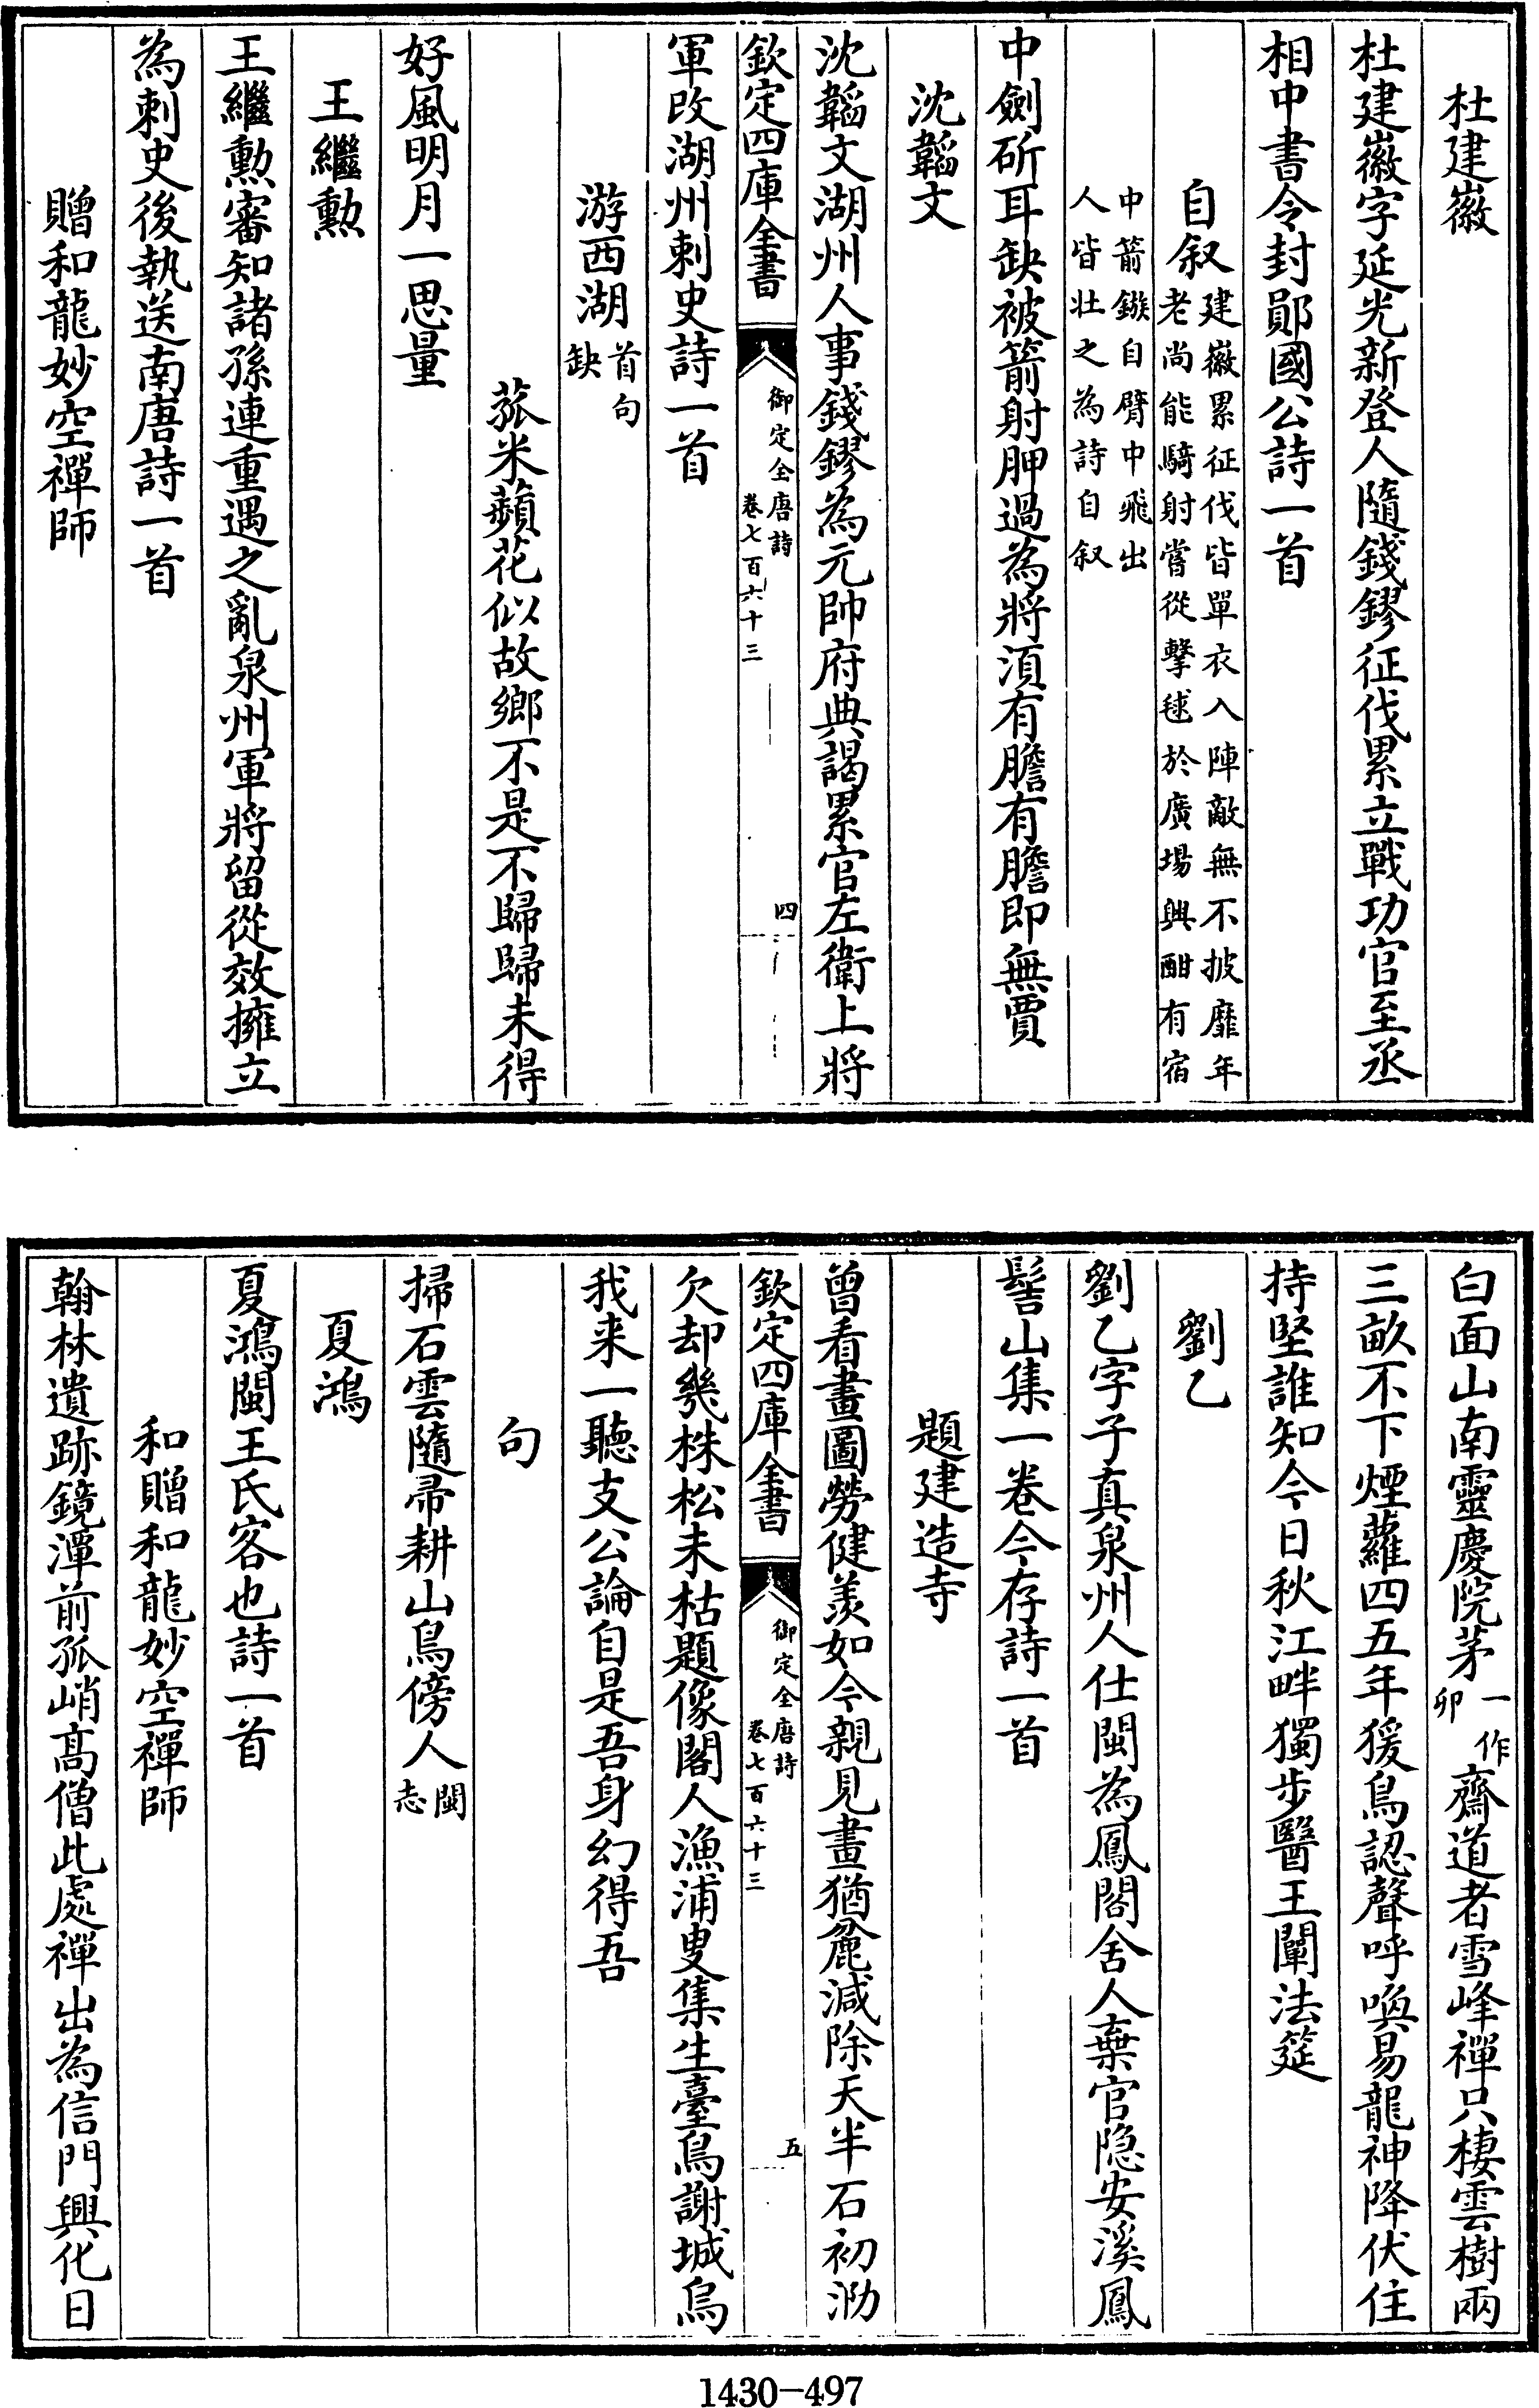 杜建徽
杜建徽字延光新登人隨錢鏐征伐累立戰功官至丞
相中書令封鄖國公詩一首
自叙建徽累征伐皆單衣入陣敵無不披靡年
老尚能騎射嘗從擊毬於廣場興酣有宿
中箭鏃自臂中飛出
人皆壯之為詩自叙
中劍斫耳缺被箭射胛過為將須有膽有膽即無賈
沈韜文
沈韜文湖州人事錢鏐為元帥府典謁累官左衛上將
欽定四庫全書
御定全唐詩
卷七百六十三
四
軍改湖州刺史詩一首
游西湖首句
缺
菰米蘋花似故鄉不是不歸歸未得
好風明月一思量
王繼勲
王繼勲審知諸孫連重遇之亂泉州軍將留從效擁立
為刺史後執送南唐詩一首
贈和龍妙空禪師
白面山南靈慶院茅一作
卯齋道者雪峰禪只棲雲樹兩
三畝不下煙蘿四五年猨鳥認聲呼喚易龍神降伏住
持堅誰知今日秋江畔獨步醫王闡法筵
劉乙
劉乙字子真泉州人仕閩為鳳閣舍人棄官隐安溪鳳
髻山集一卷今存詩一首
題建造寺
曾看畫圖勞健羨如今親見畫猶麄減除天半石初泐
欽定四庫全書
御定全唐詩
卷七百六十三
五
欠却幾株松未枯題像閣人漁浦叟集生臺鳥謝城烏
我来一聽支公論自是吾身幻得吾
句
掃石雲隨帚耕山鳥傍人閩
志
夏鴻
夏鴻閩王氏客也詩一首
和贈和龍妙空禪師
翰林遺跡鏡潭前孤峭髙僧此處禪出為信門興化日
1430-497